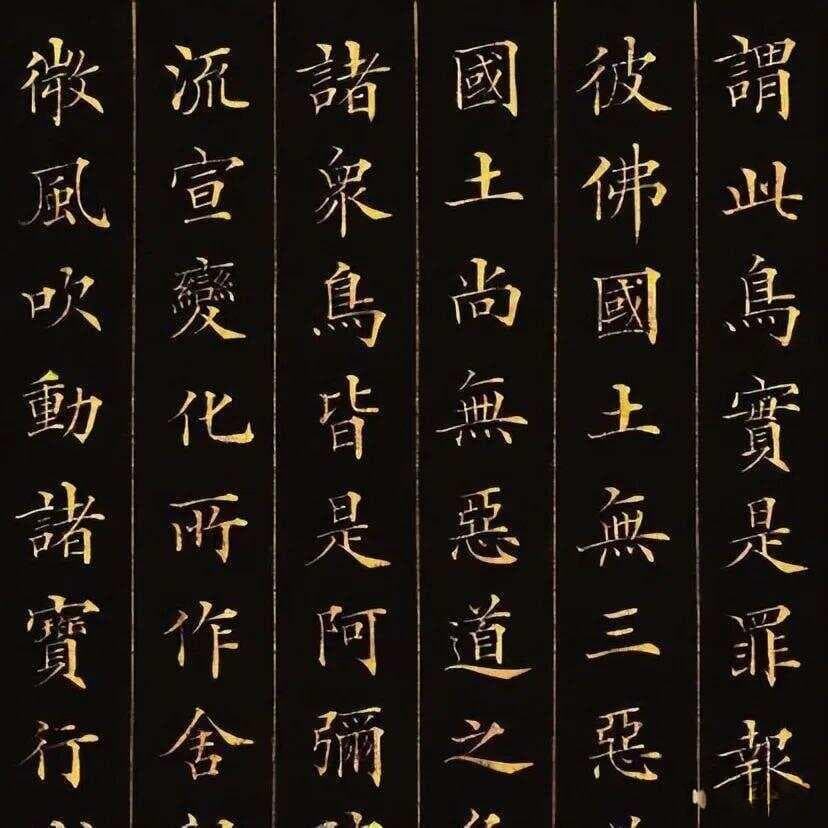 謂此鳥實是罪報
彼佛國土無三惡
國土尚無惡道之
諸衆鳥皆是阿彌
流宣變化所作舍
微風吹動諸寶行